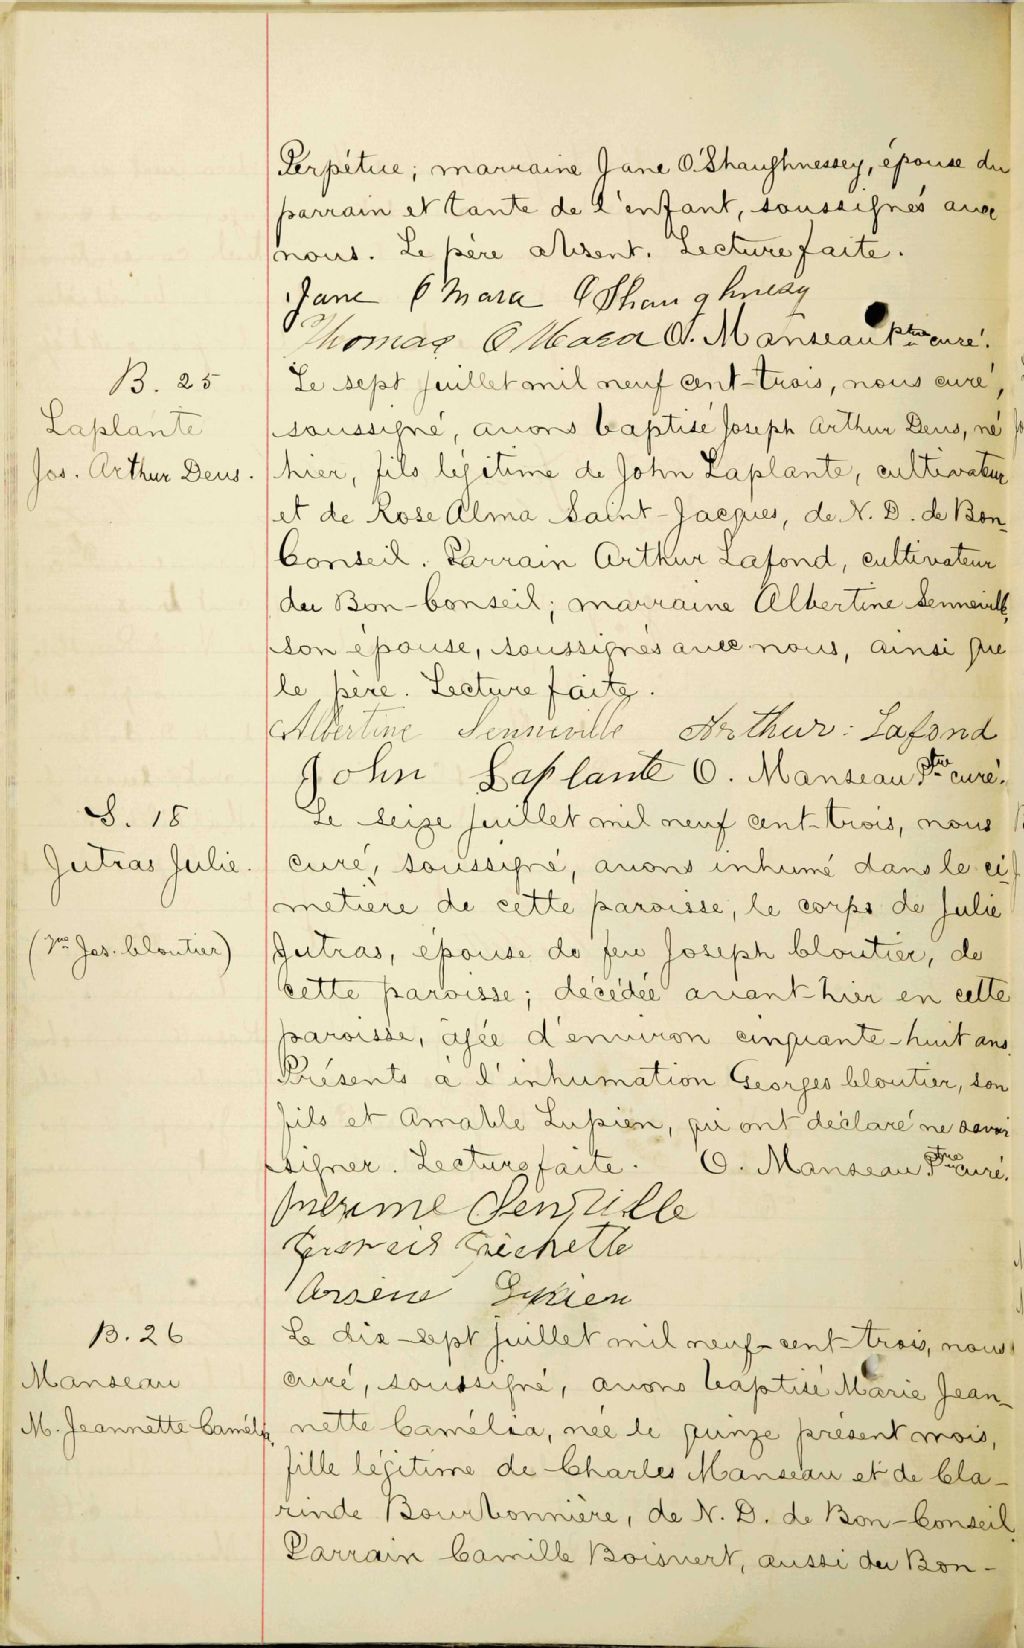 Perpétue; marraine Jane O'Shaughnessey, épouse du
parrain et tante de l'enfant, soussignés avec
nous. Le père absent. Lecture faite.
Jane O Mara O Shaughnesy
Thomas O Mara O. Manseau Ptre curé.
B. 25
Laplante
Jos. Arthur Deus.
Le sept juillet mil neuf cent-trois, nous curé,
soussigné, avons baptisé Joseph Arthur Deus, né
hier, fils légitime de John Laplante, cultivateur
et de Rose Alma Saint-Jacques, de N. D. de Bon-
Conseil. Parrain Arthur Lafond, cultivateur
du Bon-Conseil; marraine Albertine Senneville,
son épouse, soussignés avec nous, ainsi que
le père. Lecture faite.
Albertine Senneville Arthur Lafond
John Laplante O. Manseau Ptre curé.
S. 18
Jutras Julie.
(Vve Jos. Cloutier)
Le seize juillet mil neuf cent-trois, nous
curé, soussigné, avons inhumé dans le ci-
metière de cette paroisse, le corps de Julie
Jutras, épouse de feu Joseph Cloutier, de
cette paroisse; décédée avant-hier en cette
paroisse, âgée d'environ cinquante-huit ans.
Présents à l'inhumation Georges Cloutier, son
fils et Amable Lupien, qui ont déclaré ne savoir
signer. Lecture faite. O. Manseau Ptre curé.
Senville
Fréchette
Arsène Lupien
B. 26
Manseau
M. Jeannette Camélia
Le dix-sept juillet mil neuf-cent-trois, nous
curé, soussigné, avons baptisé Marie Jean-
nette Camélia, née le quinze présent mois,
fille légitime de Charles Manseau et de Cla-
rinde Bourbonnière, de N. D. de Bon-Conseil.
Parrain Camille Boisvert, aussi du Bon-